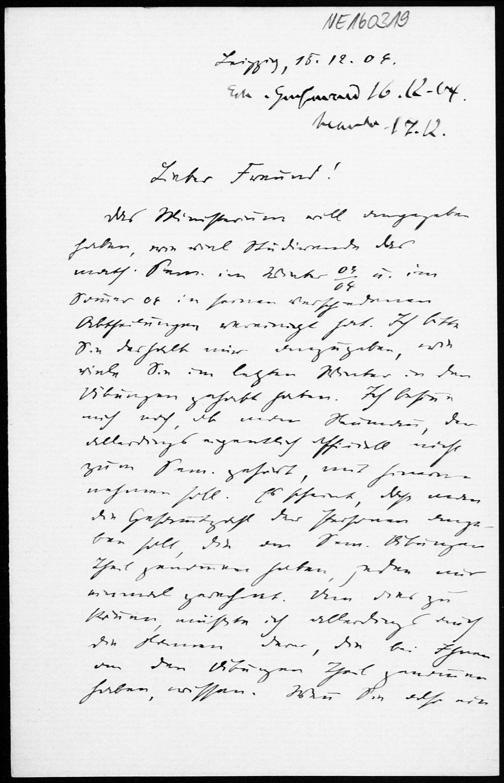 NE160319
Leipzig, 15. 12. 04.
16.12.04.
17.12.
Lieber Freund!
Das Ministerium will angegeben
haben, wie viel Studirende das
math. Sem. im Winter 03/04 u. im
Somer 04 in seinen verschiedenen
Abtheilungen vereinigt hat. Ich bitte
Sie deshalb mir anzugeben, wie
viele Sie im letzten Winter in den
Übungen gehabt haben. Ich
mich noch, ob man Neumann, der
allerdings eigentlich officiell nicht
zum Sem. gehört, mit
nehmen soll. Es scheint, dass man
die Gesamtzahl der Personen ange-
ben soll, die an Sem. Übungen
Theil genomen haben, jeden nur
einmal gerechnet. Um dies zu
könen, müsste ich allerdings auch
die Namen derer, die bei Ihnen
an den Übungen Theil genomen
haben, wissen. Wen Sie also